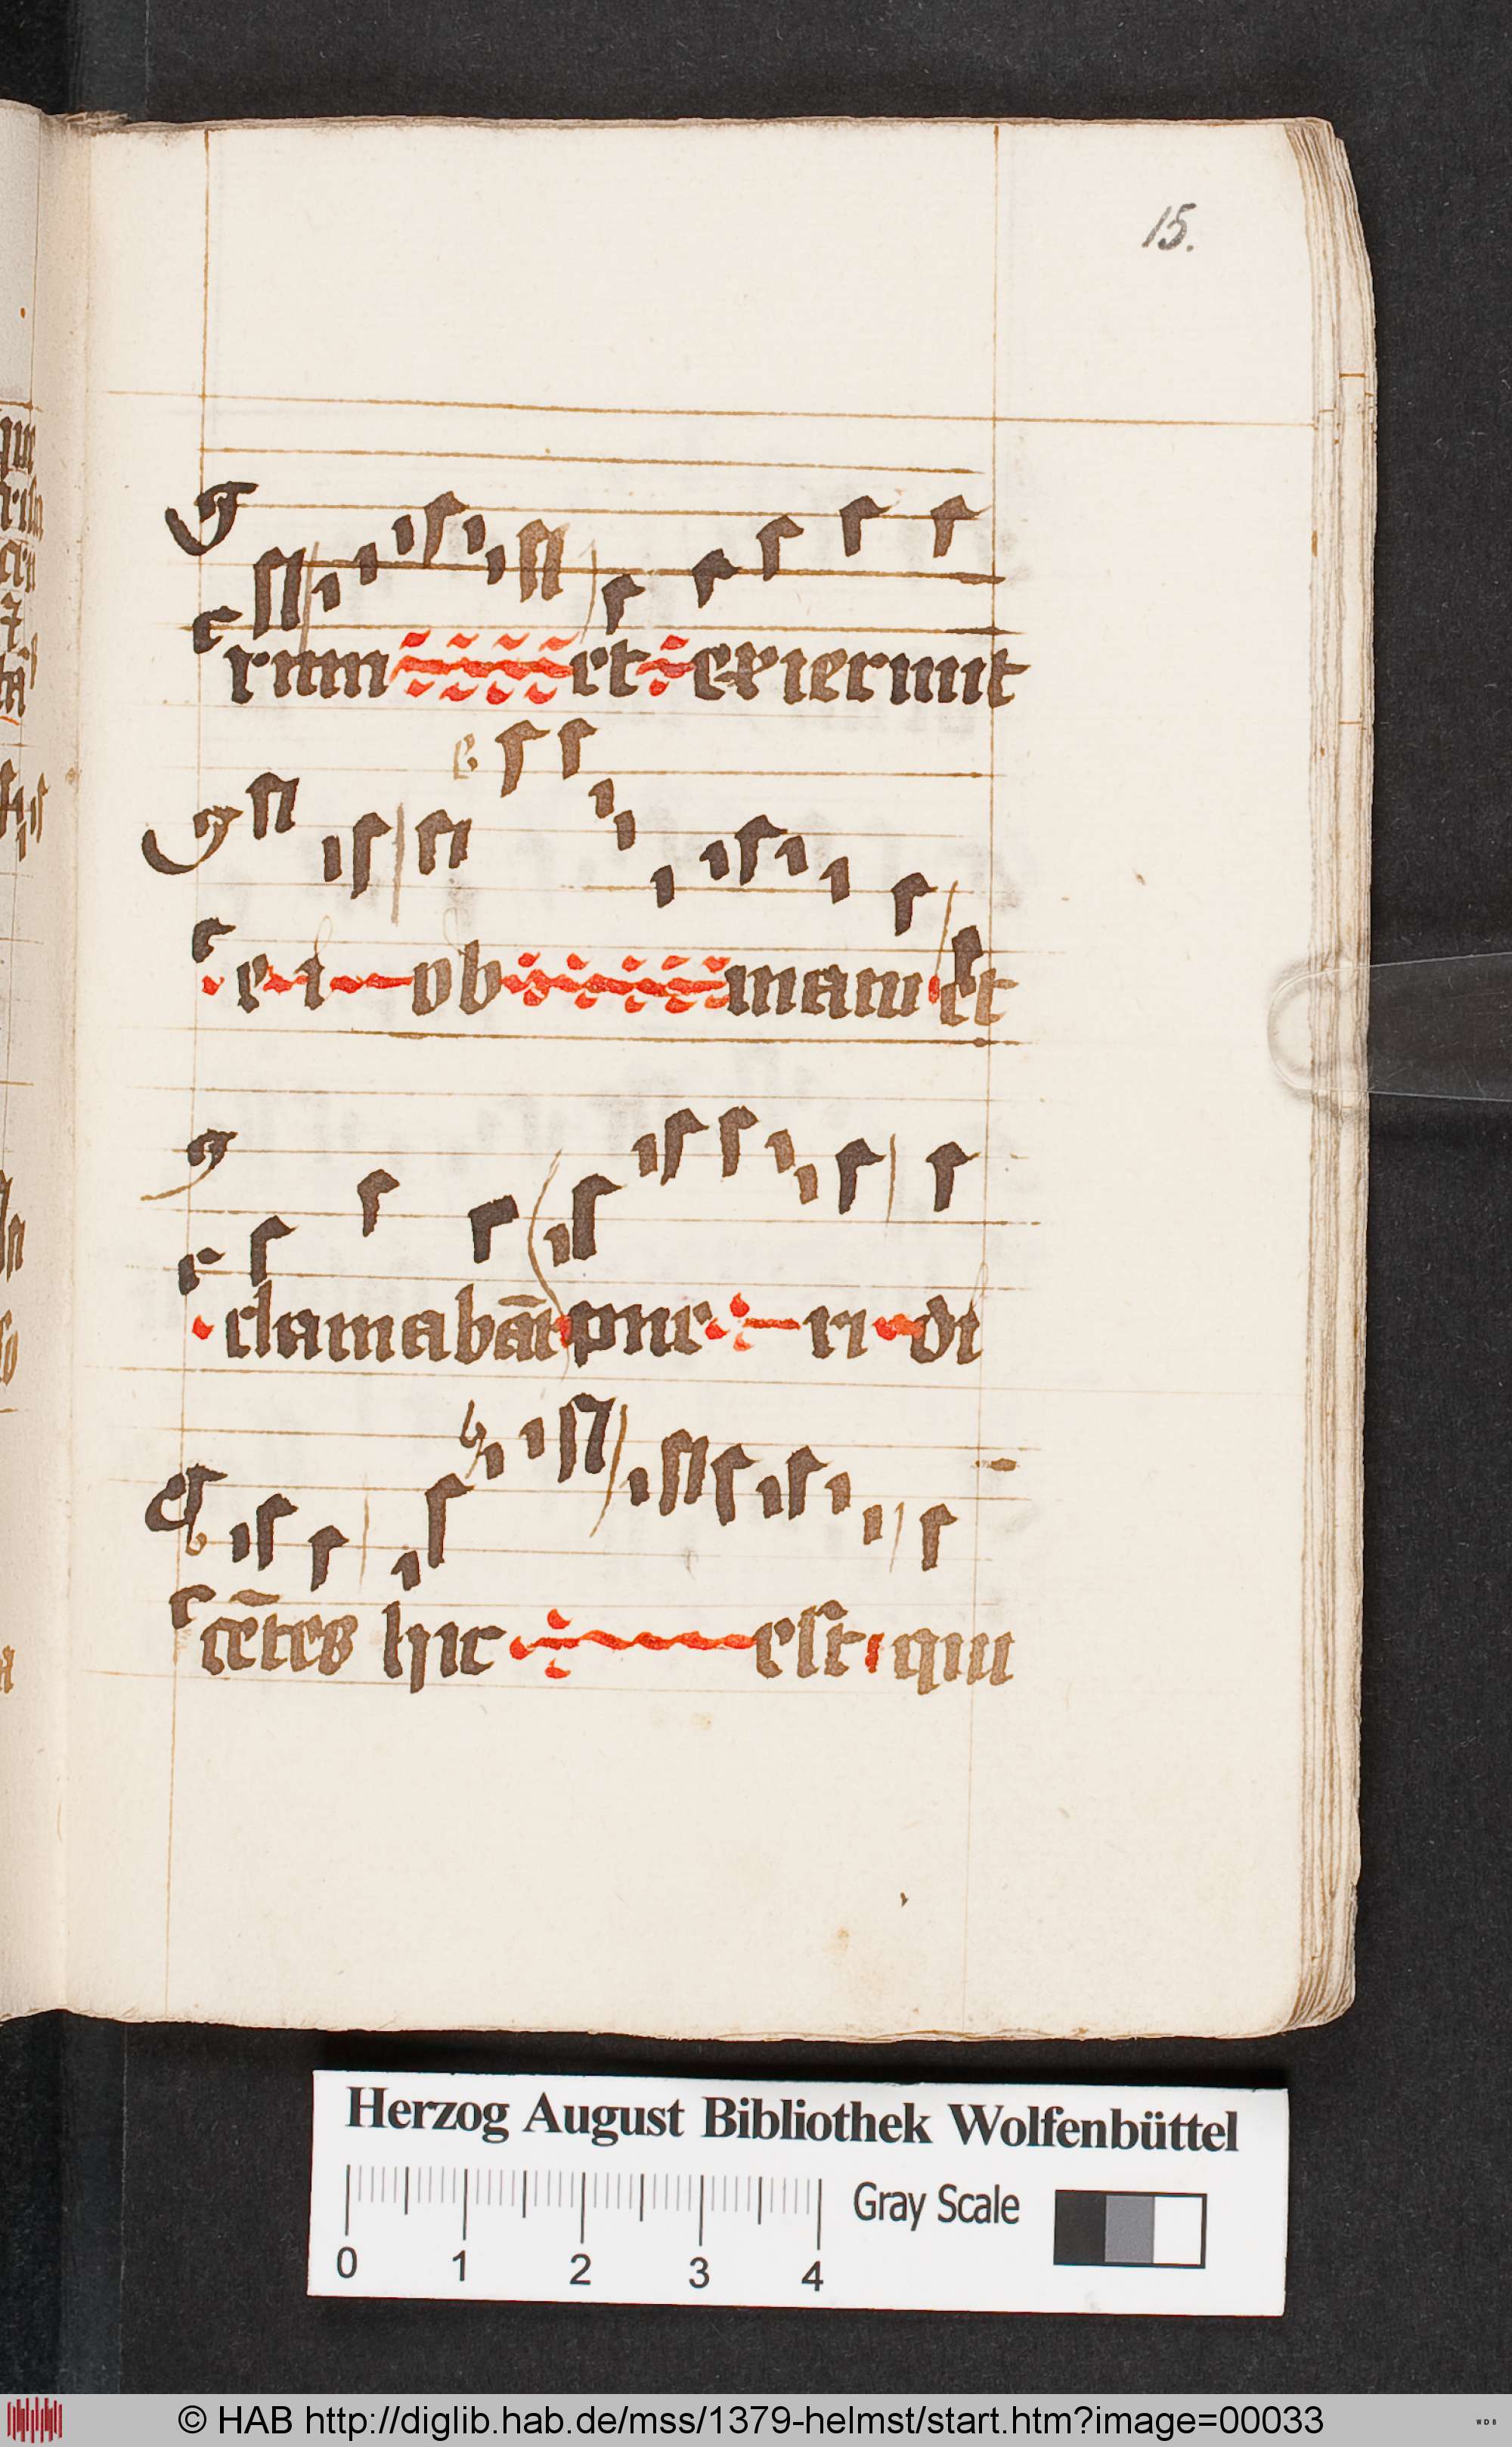 15.
rum et exierunt
e i ob manu et
clamabāt pue ri di
cētes hic est qui
Herzog August Bibliothek Wolfenbüttel
Gray Scale
0 1 2 3 4
© HAB http://diglib.hab.de/mss/1379-helmst/start.htm?image=00033